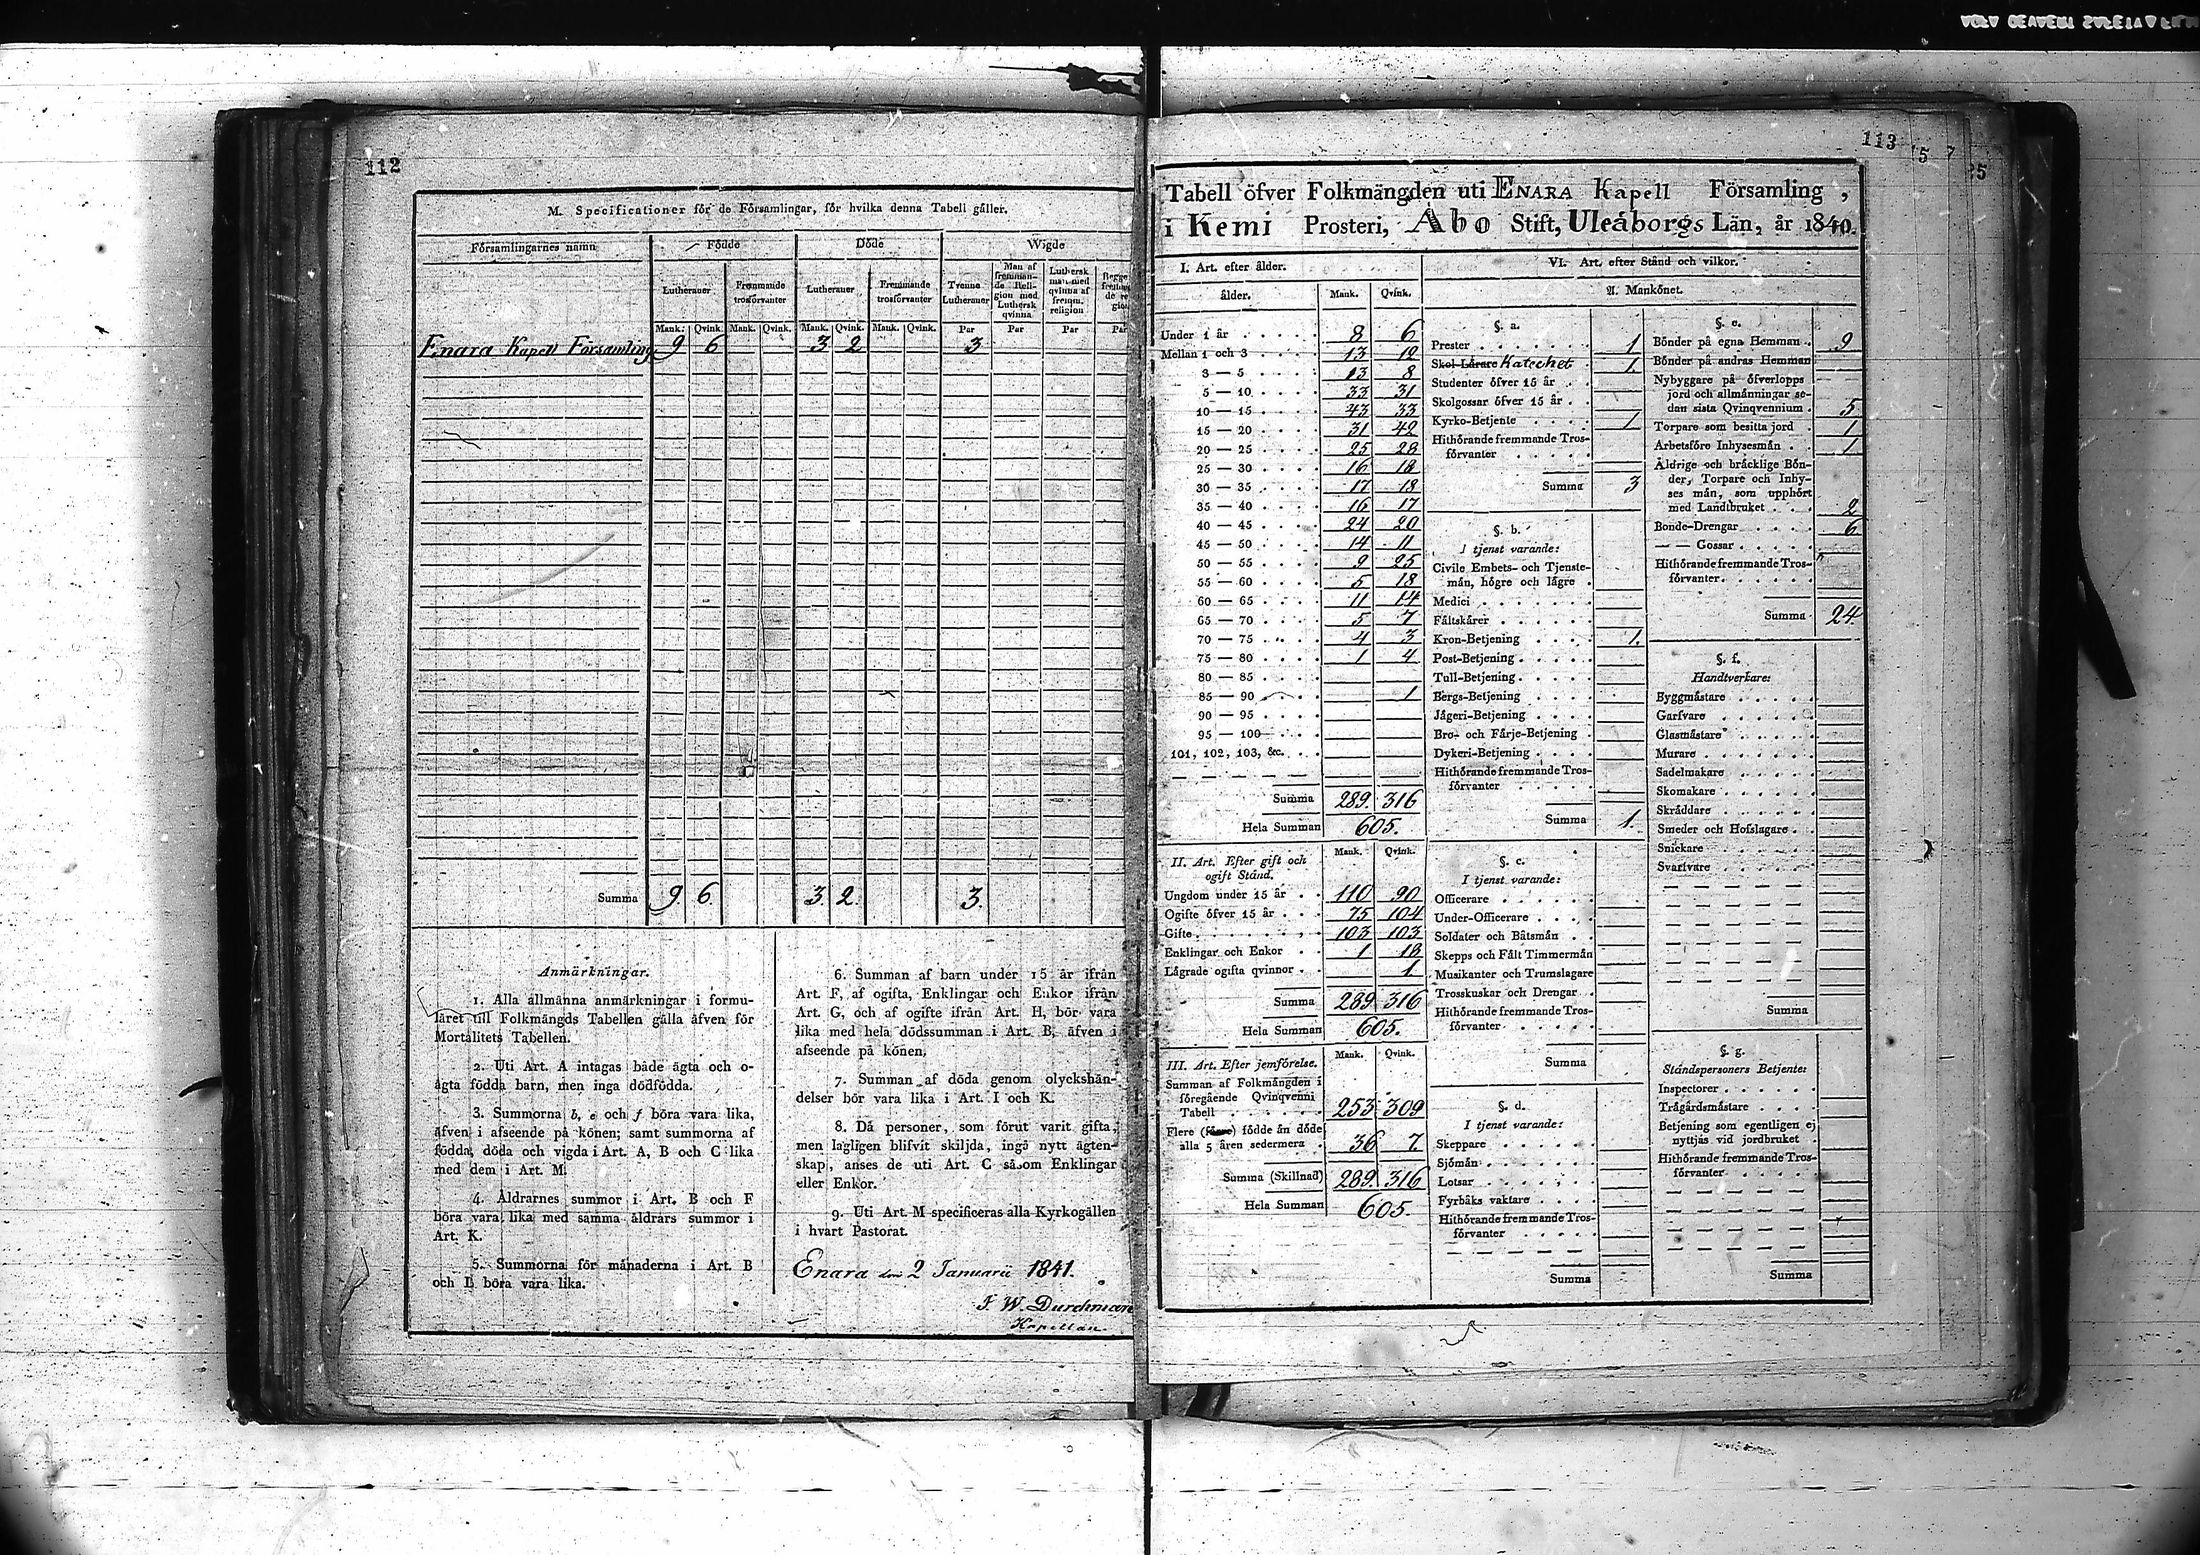 112
M. Specificationer för de Församlingar, för hvilka denna Tabell gäller.
Församlingarnes namn Födde Döde Wigde
Lutheraner Främmande trosförvanter Lutheraner Främmande trosförvanter Tvenne Lutheraner Man af fremmande Religion med Luthersk qvinna Luthersk man med qvinna af fremm. religion
Mank. Qvink. Mank. Qvink. Mank. Qvink. Mank. Qvink. Par Par Par Par
Enara Kapell Församling 9 6 3 2 3
Summa 9 6 3 2 3.
Anmärkningar.
1. Alla allmänna anmärkningar i formu-
läret till Folkmängds Tabellen gälla äfven för
Mortalitets Tabellen.
2. Uti Art. A intagas både ägta och o-
ägta födda barn, men inga dödfödda.
3. Summorna b, e och f böra vara lika,
äfven i afseende på könen; samt summorna af
födda, döda och vigda i Art. A, B och C lika
med dem i Art. M.
4. Åldrarnes summor i Art. B och F
böra vara lika med samma åldrars summor i
Art. K.
5. Summorna för månaderna i Art. B
och D böra vara lika.
6. Summan af barn under 15 år ifrån
Art. F, af ogifta, Enklingar och Enkor ifrån
Art. G, och af ogifte ifrån Art. H, bör vara
lika med hela dödssumman i Art. B, äfven i
afseende på könen.
7. Summan af döda genom olyckshän-
delser bör vara lika i Art. I och K.
8. Då personer, som förut varit gifta,
men lagligen blifvit skiljda, ingå nytt ägten-
skap, anses de uti Art. C såsom Enklingar
eller Enkor.
9. Uti Art. M specificeras alla Kyrkogällen
i hvart Pastorat.
Enara den 2 Januarii 1841.
F. W. Durchman
Kapellan.
113
Tabell öfver Folkmängden uti ENARA Kapell Församling,
i Kemi Prosteri, Åbo Stift, Uleåborgs Län, år 1840.
I. Art. efter ålder.
ålder. Mank. Qvink.
Under 1 år 8 6
Mellan 1 och 3 13 12
3 — 5 13 8
5 — 10 33 31
10 — 15 43 33
15 — 20 31 42
20 — 25 25 28
25 — 30 16 18
30 — 35 17 18
35 — 40 16 17
40 — 45 24 20
45 — 50 14 11
50 — 55 9 25
55 — 60 5 18
60 — 65 11 14
65 — 70 5 7
70 — 75 4 3
75 — 80 1 4
80 — 85
85 — 90 1
90 — 95
95 — 100
101, 102, 103, &c.
Summa 289. 316
Hela Summan 605.
II. Art. Efter gift och
ogift Stånd. Mank. Qvink.
Ungdom under 15 år 110 90
Ogifte öfver 15 år 75 104
Gifte 103 103
Enklingar och Enkor 1 18
Lägrade ogifta qvinnor 1
Summa 289 316
Hela Summan 605.
III. Art. Efter jemförelse. Mank. Qvink.
Summan af Folkmängden i
föregående Qvinqvenni
Tabell 253 309
Flere (färre) födde än döde
alla 5 åren sedermera 36 7.
Summa (Skillnad) 289. 316
Hela Summan 605.
VI. Art. efter Stånd och vilkor.
A. Mankönet.
§. a.
Prester 1
Skol-Lärare Katechet 1.
Studenter öfver 15 år
Skolgossar öfver 15 år
Kyrko-Betjente 1
Hithörande fremmande Tros-
förvanter
Summa 3
§. b.
I tjenst varande:
Civile Embets- och Tjenste-
män, högre och lägre
Medici
Fältskärer
Kron-Betjening 1.
Post-Betjening
Tull-Betjening
Bergs-Betjening
Jägeri-Betjening
Bro- och Färje-Betjening
Dykeri-Betjening
Hithörande fremmande Tros-
förvanter
Summa 1.
§. c.
I tjenst varande:
Officerare
Under-Officerare
Soldater och Båtsmän
Skepps och Fält Timmermän
Musikanter och Trumslagare
Trosskuskar och Drengar
Hithörande fremmande Tros-
förvanter
Summa
§. d.
I tjenst varande:
Skeppare
Sjömän
Lotsar
Fyrbåks vaktare
Hithörande fremmande Tros-
förvanter
Summa
§. e.
Bönder på egna Hemman 9
Bönder på andras Hemman
Nybyggare på öfverlopps
jord och allmänningar se-
dan sista Qvinqvennium 5
Torpare som besitta jord 1
Arbetsföre Inhysesmän 1
Åldrige och bräcklige Bön-
der, Torpare och Inhy-
ses män, som upphört
med Landtbruket 2
Bonde-Drengar 6
— — Gossar
Hithörande fremmande Tros-
förvanter
Summa 24
§. f.
Handtverkare:
Byggmästare
Garfvare
Glasmästare
Murare
Sadelmakare
Skomakare
Skräddare
Smeder och Hofslagare
Snickare
Svarfvare
Summa
§. g.
Ståndspersoners Betjente:
Inspectorer
Trägårdsmästare
Betjening som egentligen ej
nyttjas vid jordbruket
Hithörande fremmande Tros-
förvanter
Summa